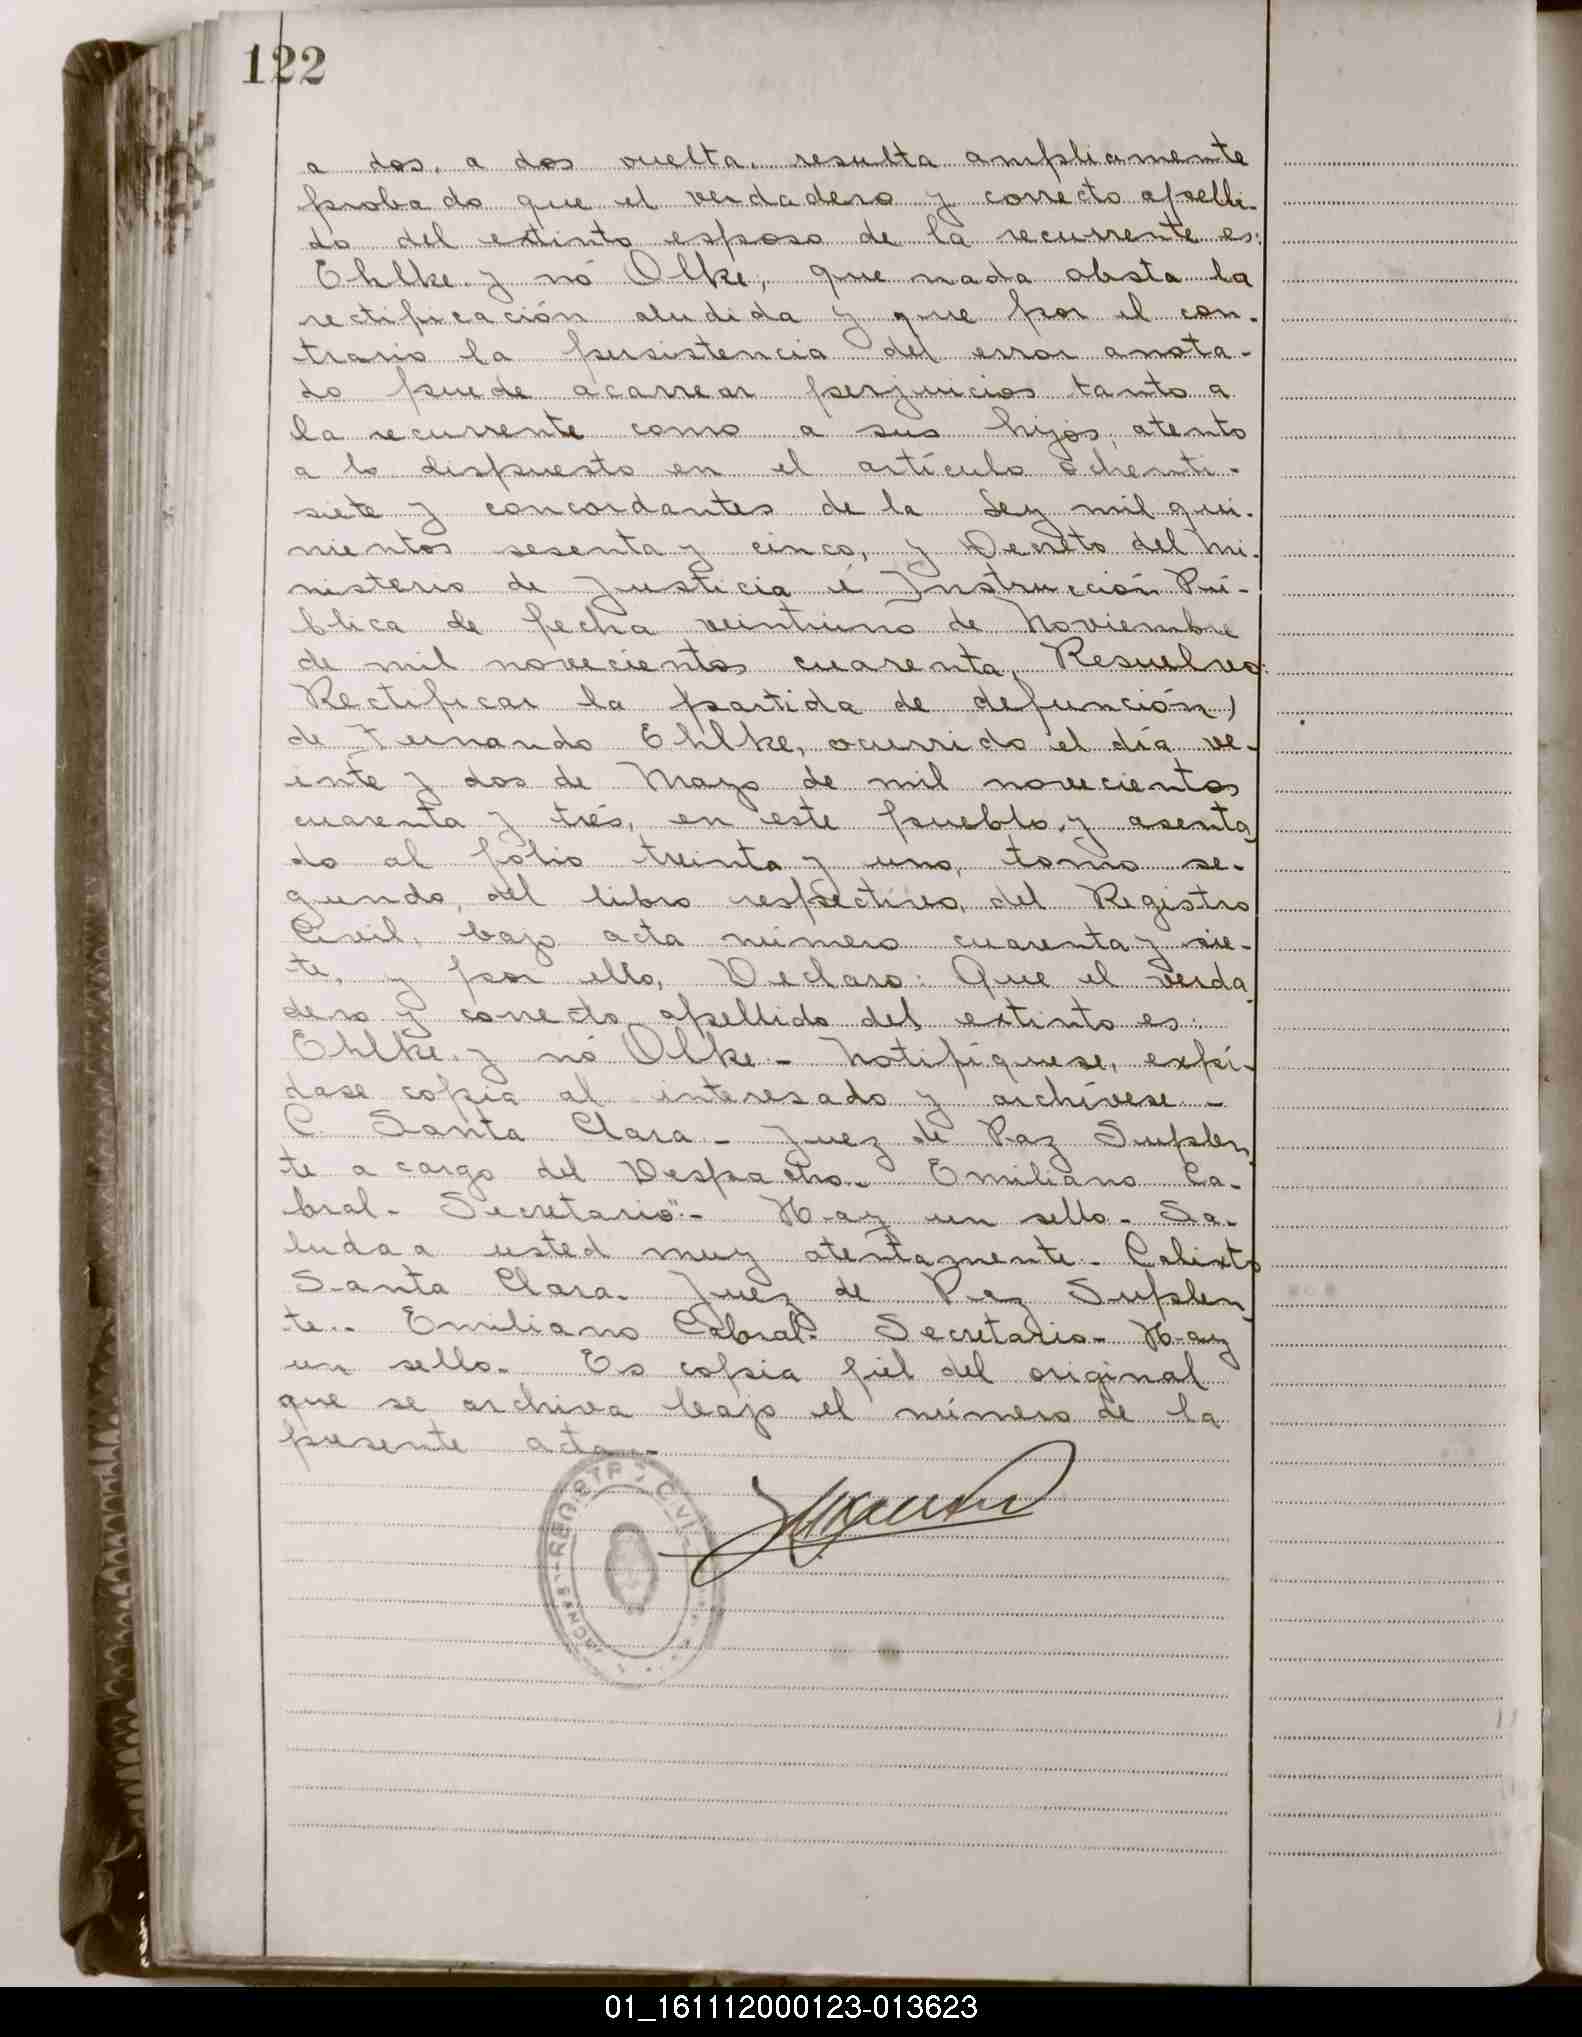 122
a dos, a dos vuelta, resulta ampliamente
probado que el verdadero y correcto apelli-
do del extinto esposo de la recurrente es:
Ehlke y nó Olke, que nada obsta la
rectificación aludida y que por el con-
trario la persistencia del error anota-
do puede acarrear perjuicios tanto a
la recurrente como a sus hijos, atento
a lo dispuesto en el artículo ochenti-
siete y concordantes de la Ley mil qui-
nientos sesenta y cinco, y Decreto del Mi-
nisterio de Justicia é Instrucción Pú-
blica de fecha veintiuno de Noviembre
de mil novecientos cuarenta, Resuelvo:
Rectificar la partida de defunción,
de Fernando Ehlke, ocurrido el día ve-
inte y dos de Mayo de mil novecientos
cuarenta y trés, en este pueblo y asenta
do al folio treinta y uno, tomo se-
gundo, del libro respectivo, del Registro
Civil, bajo acta número cuarenta y sie-
te, y por ello, Declaro: Que el verda
dero y correcto apellido del extinto es:
Ehlke y nó Olke - Notifíquese, expí-
dase copia al interesado y archívese -
C. Santa Clara - Juez de Paz Suplen
te a cargo del Despacho - Emiliano Ca-
bral - Secretario" - Hay un sello - Sa-
luda a usted muy atentamente - Calixto
Santa Clara - Juez de Paz Suplen
te - Emiliano Cabral - Secretario - Hay
un sello - Es copia fiel del original
que se archiva bajo el número de la
presente acta -
REGISTRO CIVIL
01_161112000123-013623